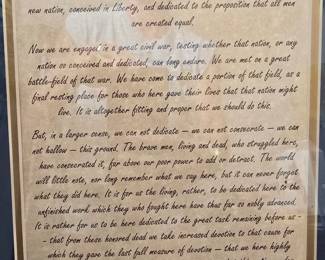 new nation, conceived in Liberty, and dedicated to the proposition that all men
are created equal.
Now we are engaged in a great civil war, testing whether that nation, or any
nation so conceived and dedicated, can long endure. We are met on a great
battle-field of that war. We have come to dedicate a portion of that field, as a
final resting place for those who here gave their lives that that nation might
live. It is altogether fitting and proper that we should do this.
But, in a larger sense, we can not dedicate — we can not consecrate — we can
not hallow — this ground. The brave men, living and dead, who struggled here,
have consecrated it, far above our poor power to add or detract. The world
will little note, nor long remember what we say here, but it can never forget
what they did here. It is for us the living, rather, to be dedicated here to the
unfinished work which they who fought here have thus far so nobly advanced.
It is rather for us to be here dedicated to the great task remaining before us -
- that from these honored dead we take increased devotion to that cause for
which they gave the last full measure of devotion — that we here highly